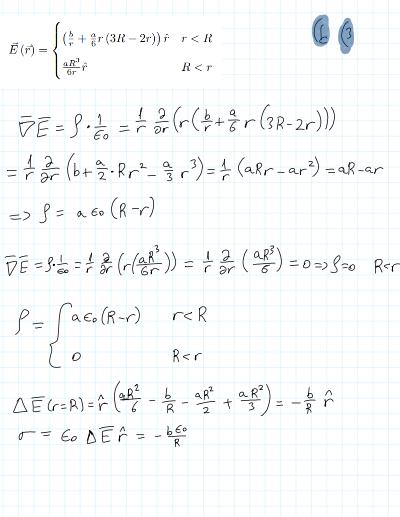 (b (3
E⃗(r⃗) = { (b/r + a/6 r (3R − 2r)) r̂ r < R
aR³/6r r̂ R < r
∇̄E̅ = ρ · 1/ε₀ = 1/r ∂/∂r (r (b/r + a/6 r (3R − 2r)))
= 1/r ∂/∂r (b + a/2 · Rr² − a/3 r³) = 1/r (aRr − ar²) = aR − ar
=> ρ = aε₀ (R − r)
∇̄E̅ = ρ · 1/ε₀ = 1/r ∂/∂r (r (aR³/6r)) = 1/r ∂/∂r (aR³/6) = 0 => ρ = 0 R < r
ρ = { aε₀ (R − r) r < R
0 R < r
ΔE̅ (r = R) = r̂ (aR²/6 − b/R − aR²/2 + aR²/3) = − b/R r̂
σ = ε₀ ΔE̅ r̂ = − bε₀/R